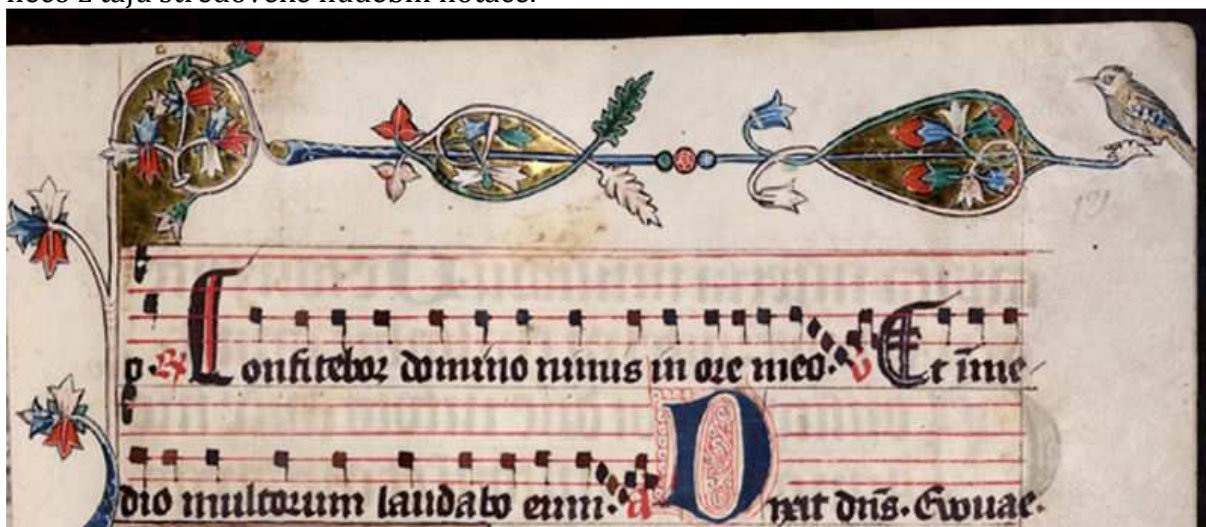 něco z tajů středověké hudební notace.
o. ℟ Confitebor domino nimis in ore meo. v Et īme
dio multorum laudabo eum. a Dixit dn̄s. Euouae.